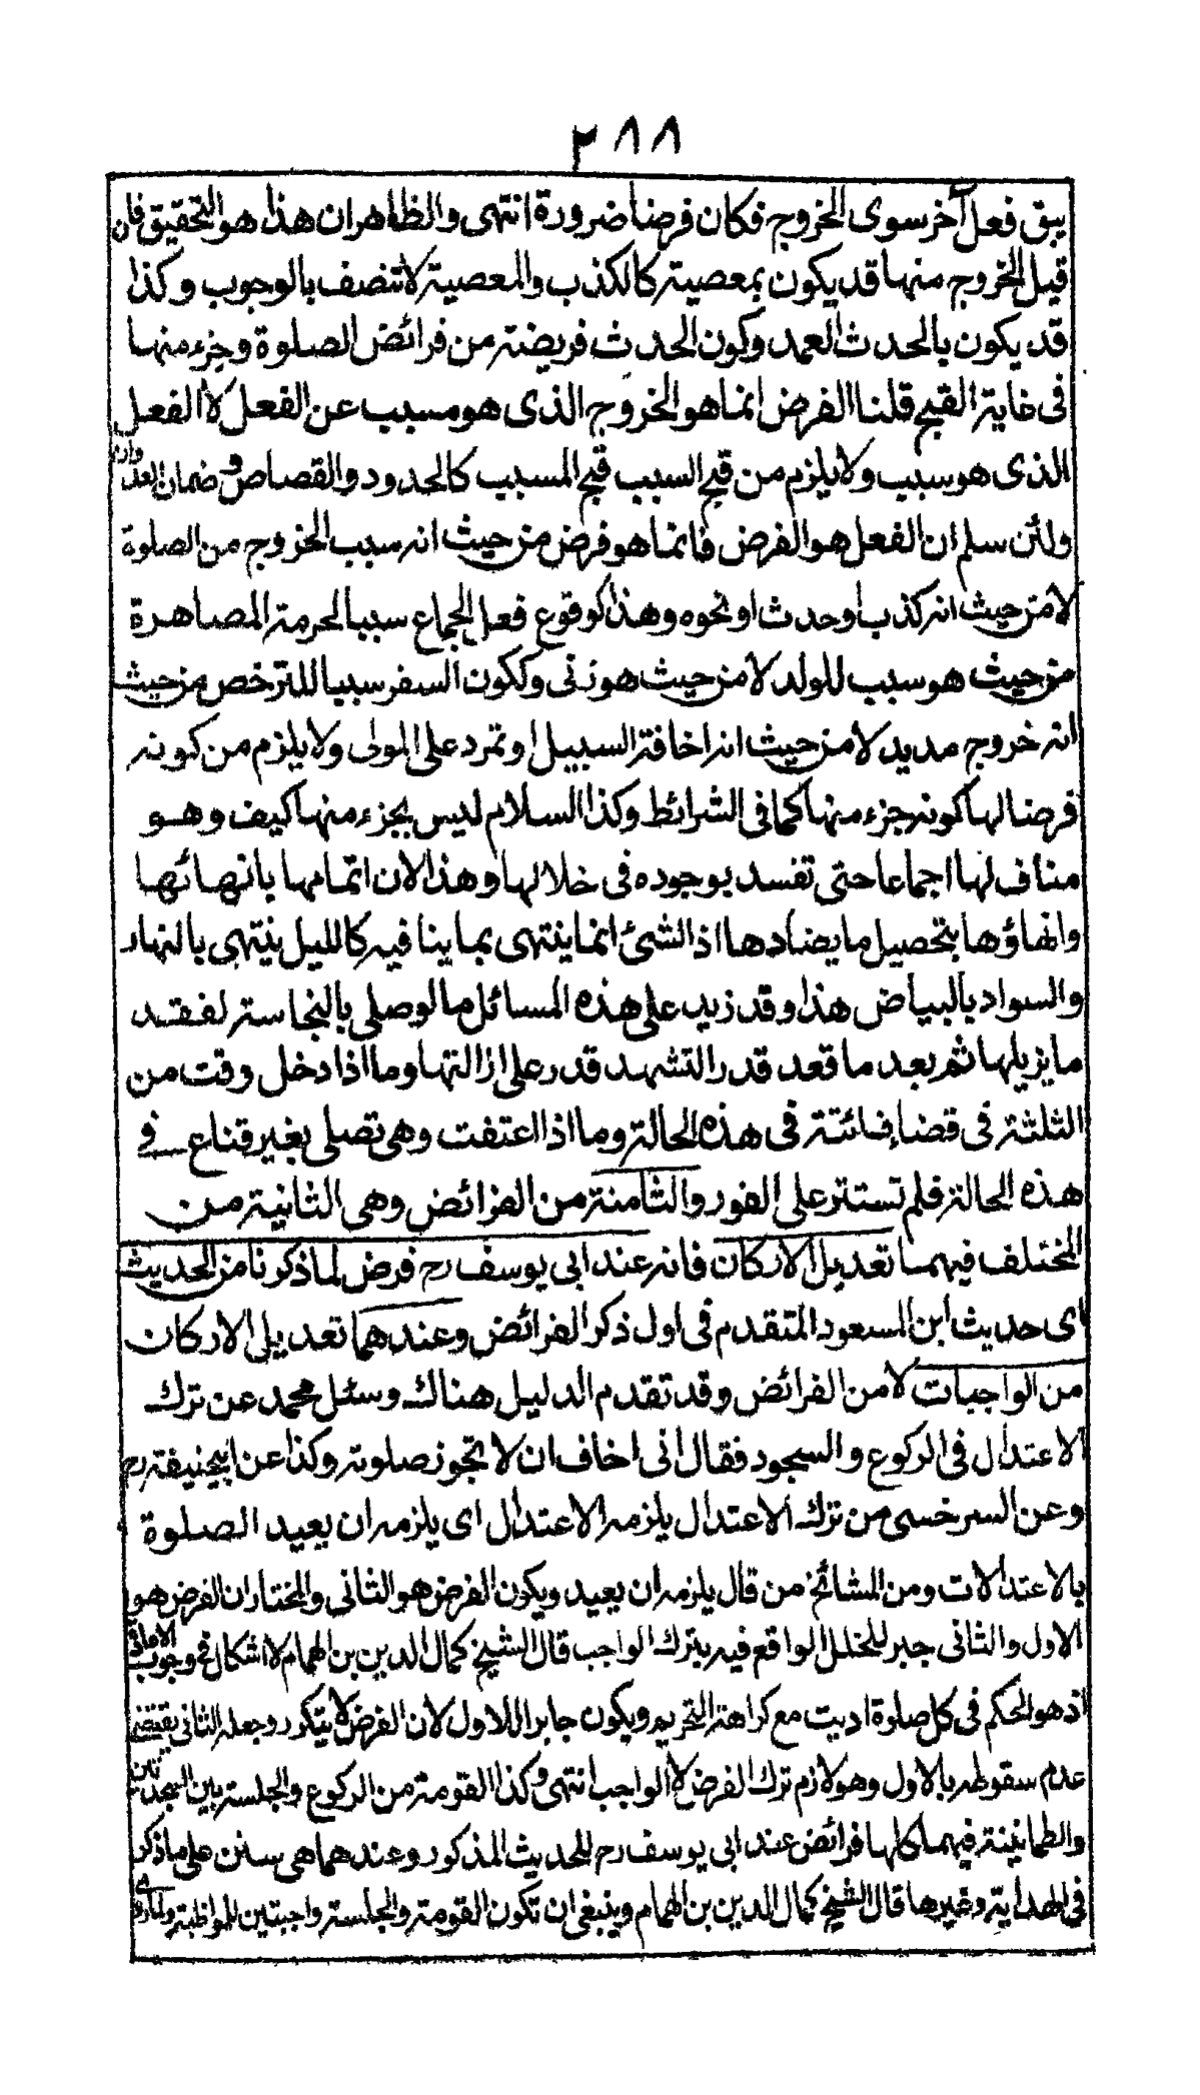 ٢٨٨
يبق فعل آخر سوى الخروج فكان فرضا ضرورة انتهى والظاهر ان هذا هو التحقيق فان
قيل الخروج منها قد يكون بمعصية كالكذب والمعصية لا تتصف بالوجوب وكذا
قد يكون بالحدث العمد وكون الحدث فريضة من فرائض الصلوة وجزء منها
فى غاية القبح قلنا الفرض انما هو الخروج الذى هو مسبب عن الفعل لا الفعل
الذى هو سبب ولا يلزم من قبح السبب قبح المسبب كالحدود والقصاص وضمان العدوان
ولئن سلم ان الفعل هو الفرض فانما هو فرض من حيث انه سبب الخروج من الصلوة
لا من حيث انه كذب او حدث او نحوه وهذا كوقوع فعل الجماع سببا لحرمة المصاهرة
من حيث هو سبب للولد لا من حيث هو زنى وككون السفر سببا للترخص من حيث
انه خروج مديد لا من حيث انه اخافة السبيل او تمرد على المولى ولا يلزم من كونه
فرضا لها كونه جزء منها كما فى الشرائط وكذا السلام ليس بجزء منها كيف وهو
مناف لها اجماعا حتى تفسد بوجوده فى خلالها وهذا لان اتمامها بانهائها
وانهاؤها بتحصيل ما يضادها اذ الشئ انما ينتهى بما ينافيه كالليل ينتهى بالنهار
والسواد بالبياض هذا وقد زيد على هذه المسائل ما لو صلى بالنجاسة لفقد
ما يزيلها ثم بعد ما قعد قدر التشهد قدر على ازالتها وما اذا دخل وقت من
الثلثة فى قضاء فائتة فى هذه الحالة وما اذا اعتقت وهى تصلى بغير قناع فى
هذه الحالة فلم تستتر على الفور والثامنة من الفرائض وهى الثانية من
المختلف فيهما تعديل الاركان فانه عند ابى يوسف رح فرض لما ذكرنا من الحديث
اى حديث ابن المسعود المتقدم فى اول ذكر الفرائض وعندهما تعديل الاركان
من الواجبات لا من الفرائض وقد تقدم الدليل هناك وسئل محمد عن ترك
الاعتدال فى الركوع والسجود فقال انى اخاف ان لا تجوز صلوته وكذا عن ابيحنيفة رح
وعن السرخسى من ترك الاعتدال يلزمه الاعتدال اى يلزمه ان يعيد الصلوة
بالاعتدالات ومن المشائخ من قال يلزمه ان يعيد ويكون الفرض هو الثانى والمختار ان الفرض هو
الاول والثانى جبر للخلل الواقع فيه بترك الواجب قال الشيخ كمال الدين بن الهمام لا اشكال فى وجوب الاعادة
اذ هو الحكم فى كل صلوة اديت مع كراهة التحريم ويكون جابرا للاول لان الفرض لا يتكرر وجعله الثانى يقتضى
عدم سقوطه بالاول وهو لازم ترك الفرض لا الواجب انتهى وكذا القومة من الركوع والجلسة بين السجدتين
والطمانينة فيهما كلها فرائض عند ابى يوسف رح للحديث المذكور وعندهما هى سنن على ما ذكر
فى الهداية وغيرها قال الشيخ كمال الدين بن الهمام وينبغى ان تكون القومة والجلسة واجبتين للمواظبة